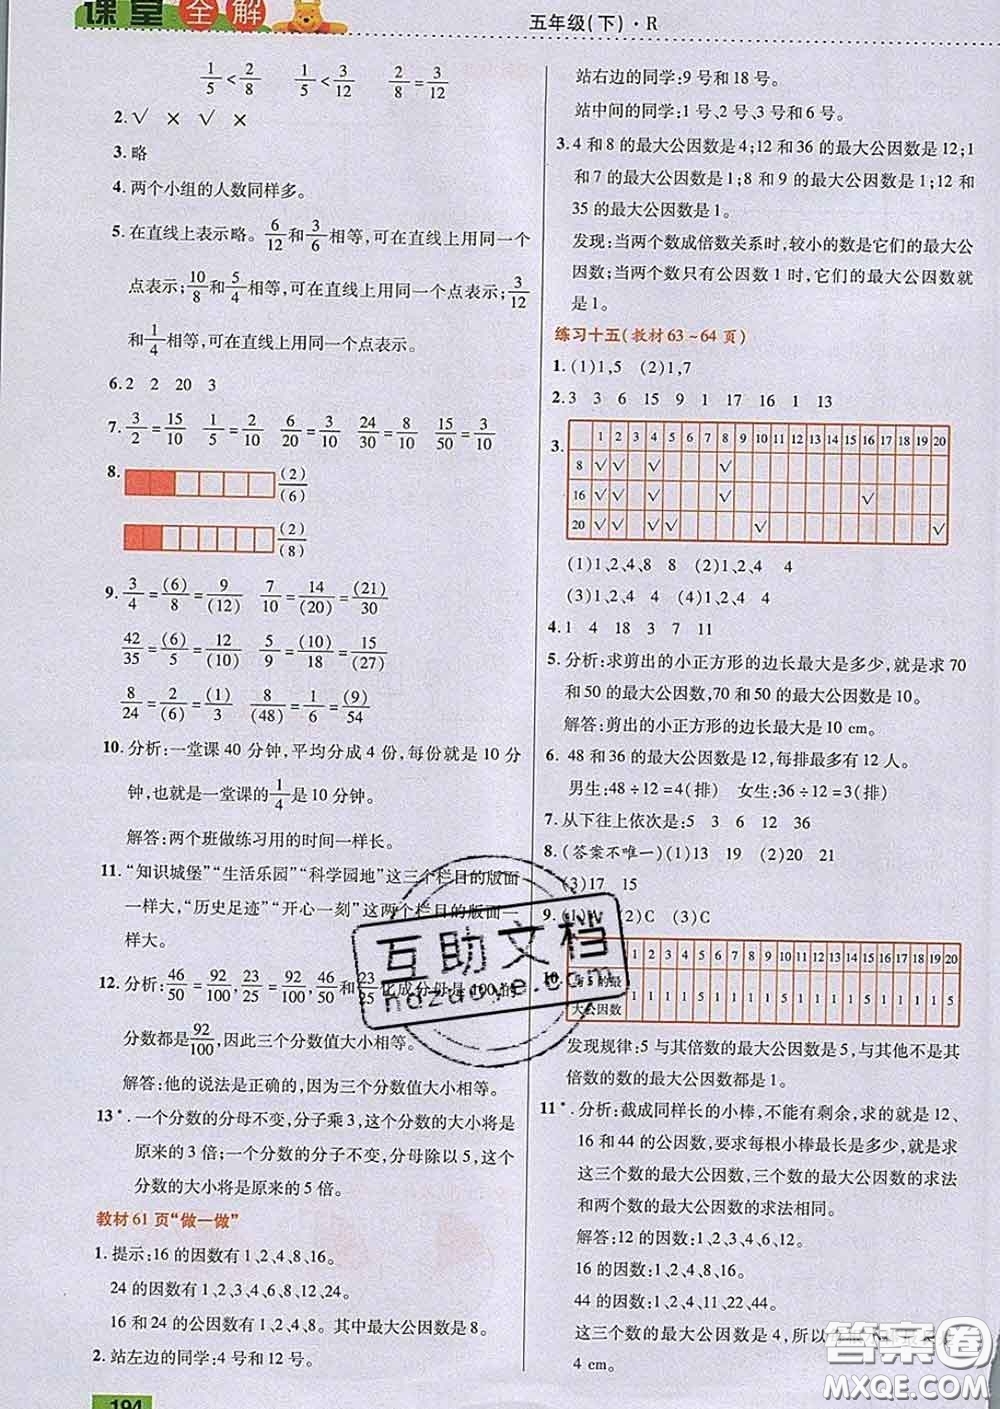 课堂全解
五年级(下)·R
1/5<2/8 1/5<3/12 2/8=3/12
2.√ × √ ×
3.略
4.两个小组的人数同样多。
5.在直线上表示略。6/12和3/6相等,可在直线上用同一个
点表示;10/8和5/4相等,可在直线上用同一个点表示;3/12
和1/4相等,可在直线上用同一个点表示。
6.2 2 20 3
7.3/2=15/10 1/5=2/10 6/20=3/10 24/30=8/10 15/50=3/10
8. (2)/(6)
(2)/(8)
9.3/4=(6)/8=9/(12) 7/10=14/(20)=(21)/30
42/35=(6)/5=12/(10) 5/9=(10)/18=15/(27)
8/24=2/(6)=(1)/3 8/(48)=1/6=(9)/54
10.分析:一堂课40分钟,平均分成4份,每份就是10分
钟,也就是一堂课的1/4是10分钟。
解答:两个班做练习用的时间一样长。
11.“知识城堡”“生活乐园”“科学园地”这三个栏目的版面
一样大,“历史足迹”“开心一刻”这两个栏目的版面一
样大。
12.分析:46/50=92/100,23/25=92/100,46/50和23/25化成分母是100的
分数都是92/100,因此三个分数值大小相等。
解答:他的说法是正确的,因为三个分数值大小相等。
13*.一个分数的分母不变,分子乘3,这个分数的大小将是
原来的3倍;一个分数的分子不变,分母除以5,这个
分数的大小将是原来的5倍。
教材61页“做一做”
1.提示:16的因数有1、2、4、8、16。
24的因数有1、2、3、4、6、8、12、24。
16和24的公因数有1、2、4、8。其中最大公因数是8。
2.站左边的同学:4号和12号。
194
站右边的同学:9号和18号。
站中间的同学:1号、2号、3号和6号。
3.4和8的最大公因数是4;12和36的最大公因数是12;1
和7的最大公因数是1;8和9的最大公因数是1;12和
35的最大公因数是1。
发现:当两个数成倍数关系时,较小的数是它们的最大公
因数;当两个数只有公因数1时,它们的最大公因数就
是1。
练习十五(教材63~64页)
1.(1)1,5 (2)1,7
2.3 3 6 15 9 1 17 16 1 13
3. 1 2 3 4 5 6 7 8 9 10 11 12 13 14 15 16 17 18 19 20
8 √ √ √ √
16 √ √ √ √ √
20 √ √ √ √ √ √
(1)1、2、4、8 8 (2)1、2、4 4
(3)1、2、4 (4)1、2、4 4
4.1 4 18 3 7 11
5.分析:求剪出的小正方形的边长最大是多少,就是求70
和50的最大公因数,70和50的最大公因数是10。
解答:剪出的小正方形的边长最大是10 cm。
6.48和36的最大公因数是12,每排最多有12人。
男生:48÷12=4(排) 女生:36÷12=3(排)
7.从下往上依次是:5 3 6 12 36
8.(答案不唯一)(1)13 19 (2)20 21
(3)17 15
9. (2)C (3)C
10. 1 2 3 4 5 6 7 8 9 10 11 12 13 14 15 16 17 18 19 20
与5的最大公因数 1 1 1 1 5 1 1 1 1 5 1 1 1 1 5 1 1 1 1 5
发现规律:5与其倍数的最大公因数是5,与其他不是其
倍数的数的最大公因数都是1。
11*.分析:截成同样长的小棒,不能有剩余,求的就是12、
16和44的公因数,要求每根小棒最长是多少,就是求
这三个数的最大公因数,三个数的最大公因数的求法
和两个数的最大公因数的求法相同。
解答:12的因数:1、2、3、4、6、12。
16的因数:1、2、4、8、16。
44的因数:1、2、4、11、22、44。
这三个数的最大公因数是4,所以
4 cm。
互助文档
hdzuoye.com
答案圈
MXQE.COM